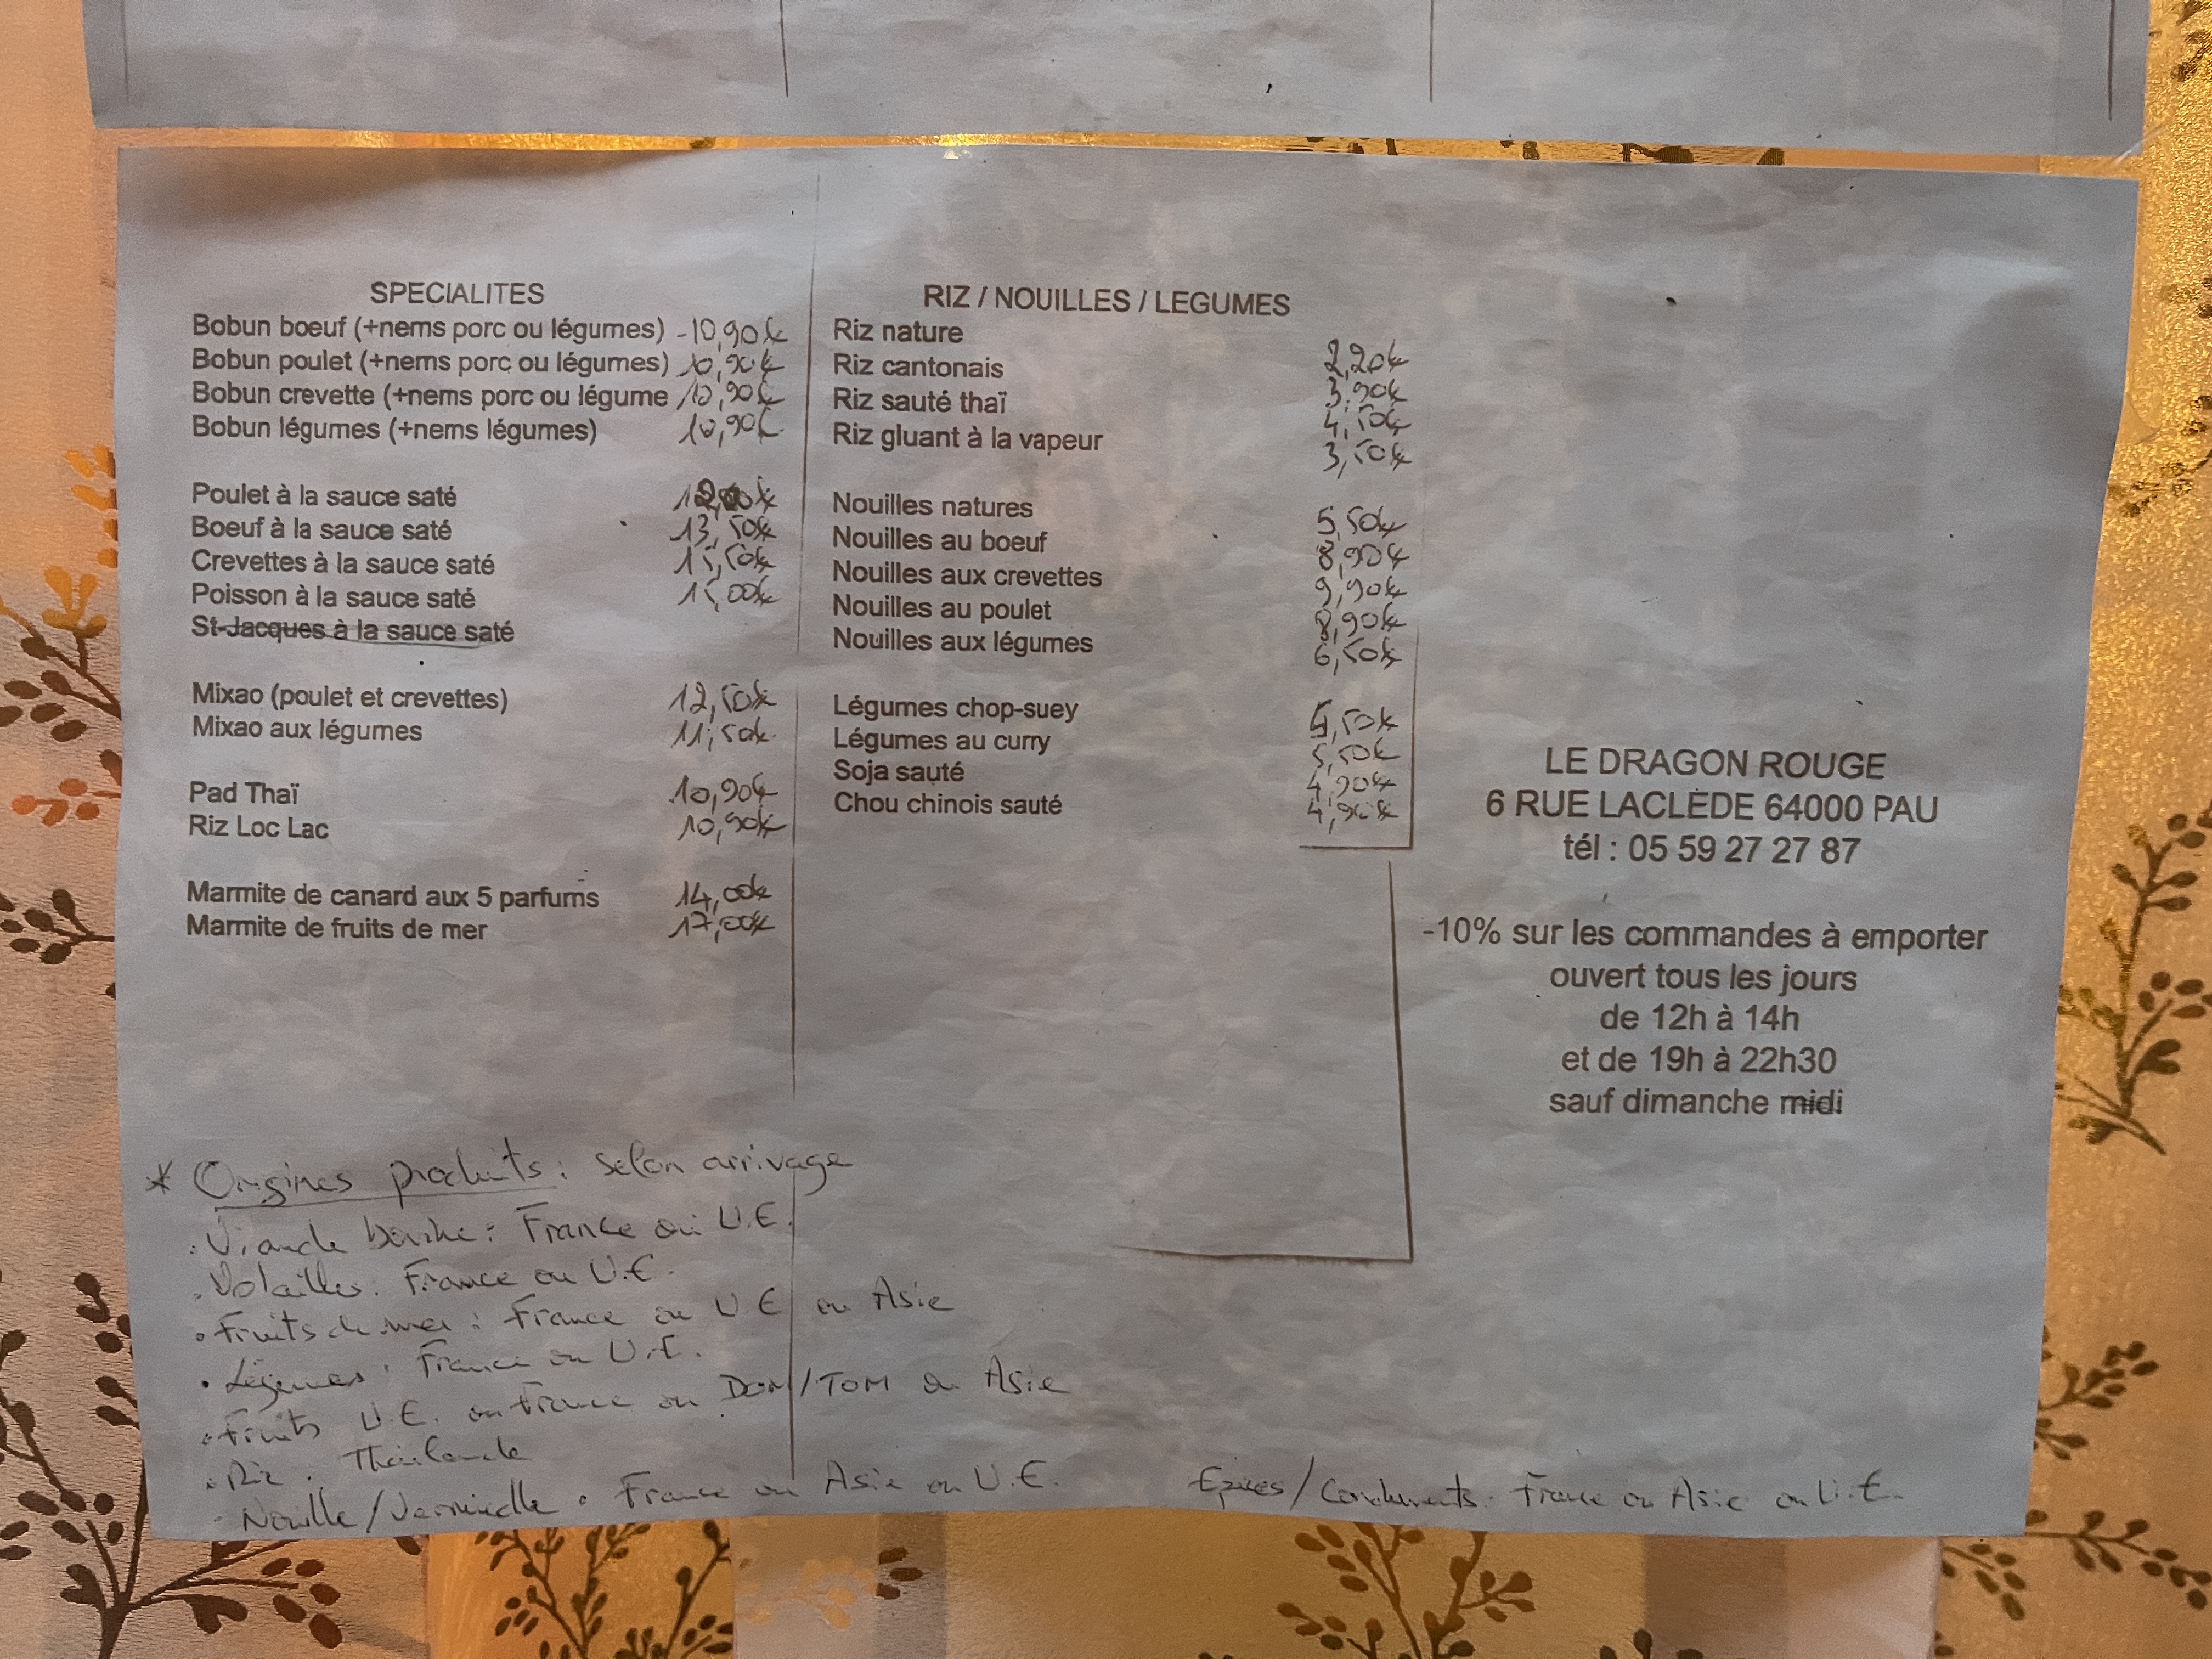 SPECIALITES
Bobun boeuf (+nems porc ou légumes) -10,90€
Bobun poulet (+nems porc ou légumes) 10,90€
Bobun crevette (+nems porc ou légume 10,90€
Bobun légumes (+nems légumes) 10,90€
Poulet à la sauce saté
Boeuf à la sauce saté 13,50€
Crevettes à la sauce saté 15,50€
Poisson à la sauce saté 15,00€
St-Jacques à la sauce saté
Mixao (poulet et crevettes) 12,50€
Mixao aux légumes 11,50€
Pad Thaï 10,90€
Riz Loc Lac 10,90€
Marmite de canard aux 5 parfums 14,00€
Marmite de fruits de mer 17,00€
RIZ / NOUILLES / LEGUMES
Riz nature 2,20€
Riz cantonais 3,90€
Riz sauté thaï 4,50€
Riz gluant à la vapeur 3,50€
Nouilles natures 5,50€
Nouilles au boeuf 8,90€
Nouilles aux crevettes 9,90€
Nouilles au poulet 8,90€
Nouilles aux légumes 6,50€
Légumes chop-suey 5,50€
Légumes au curry 5,50€
Soja sauté 4,90€
Chou chinois sauté 4,90€
LE DRAGON ROUGE
6 RUE LACLEDE 64000 PAU
tél : 05 59 27 27 87
-10% sur les commandes à emporter
ouvert tous les jours
de 12h à 14h
et de 19h à 22h30
sauf dimanche midi
* Origines produits : selon arrivage
. Viande bovine : France ou U.E.
. Volailles : France ou U.E.
. Fruits de mer : France ou U E ou Asie
. Légumes : France ou U.E.
. Fruits U.E. ou France ou DOM/TOM ou Asie
. Riz : Thaïlande
. Nouille/Vermicelle : France ou Asie ou U.E.
Epices/Condiments : France ou Asie ou U.E.